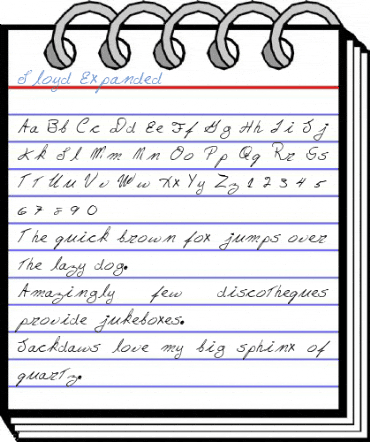 Floyd Expanded
Aa Bb Cc Dd Ee Ff Gg Hh Ii Jj
Kk Ll Mm Nn Oo Pp Qq Rr Ss
Tt Uu Vv Ww Xx Yy Zz 1 2 3 4 5
6 7 8 9 0
The quick brown fox jumps over
the lazy dog.
Amazingly few discotheques
provide jukeboxes.
Jackdaws love my big sphinx of
quartz.